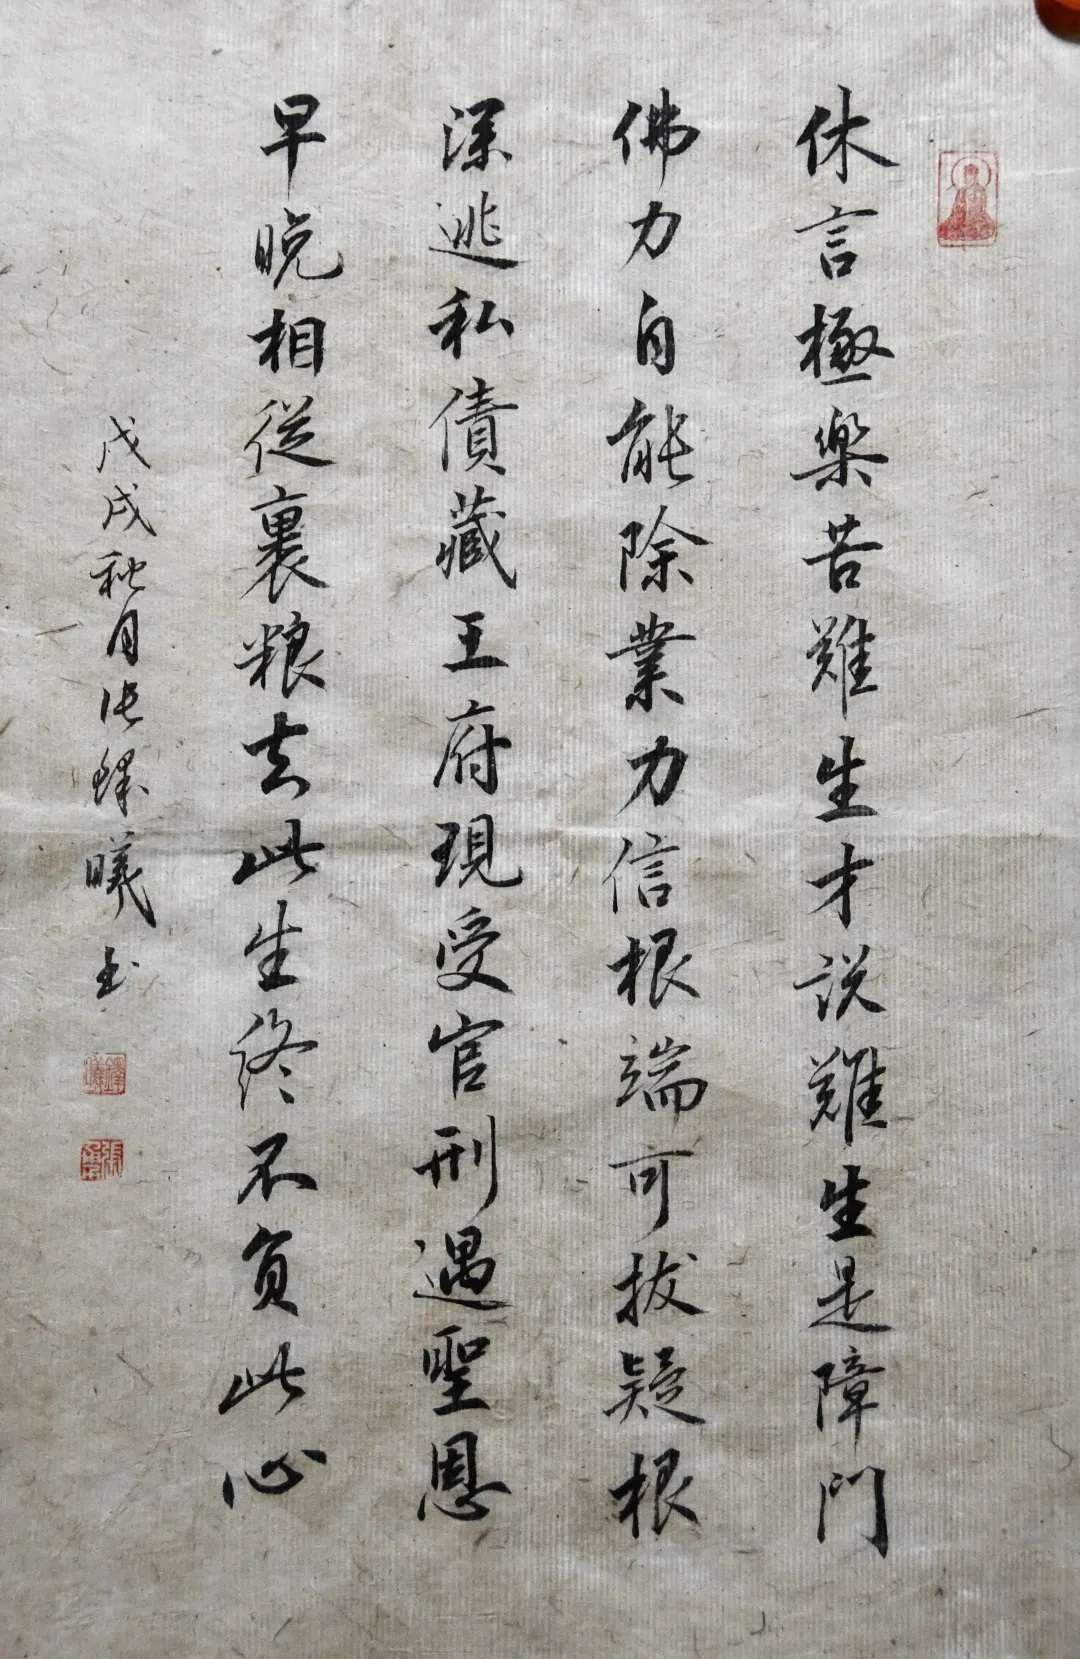 休言極樂苦難生才説難生是障門
佛力自能除業力信根端可拔疑根
深逃私債藏王府現受官刑遇聖恩
早晚相從裹粮去此生終不負此心
戊戌秋月张鐸曦书